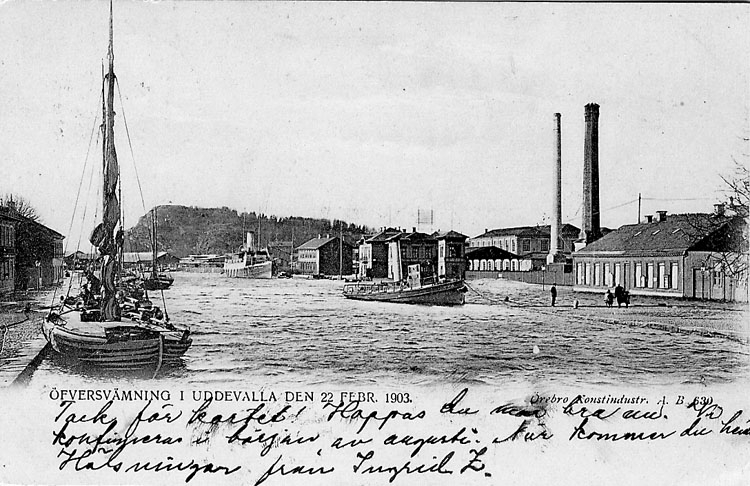 ÖFVERSVÄMNING I UDDEVALLA DEN 22 FEBR. 1903.
Örebro Konstindustr. A. B. 639
Tack för kortet! Hoppas du mår bra nu. Vi
konfirmeras i början av augusti. När kommer du hem
Hälsningar från Ingrid Z.